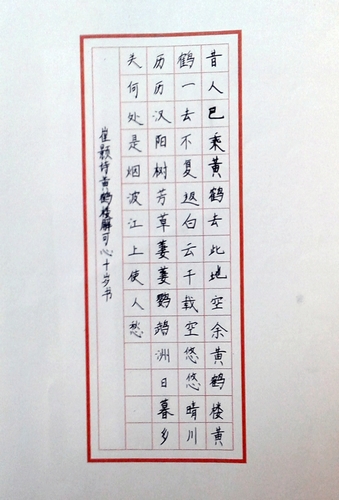 昔人已乘黄鹤去此地空余黄鹤楼黄
鹤一去不复返白云千载空悠悠晴川
历历汉阳树芳草萋萋鹦鹉洲日暮乡
关何处是烟波江上使人愁
崔颢诗黄鹤楼解可心十岁书